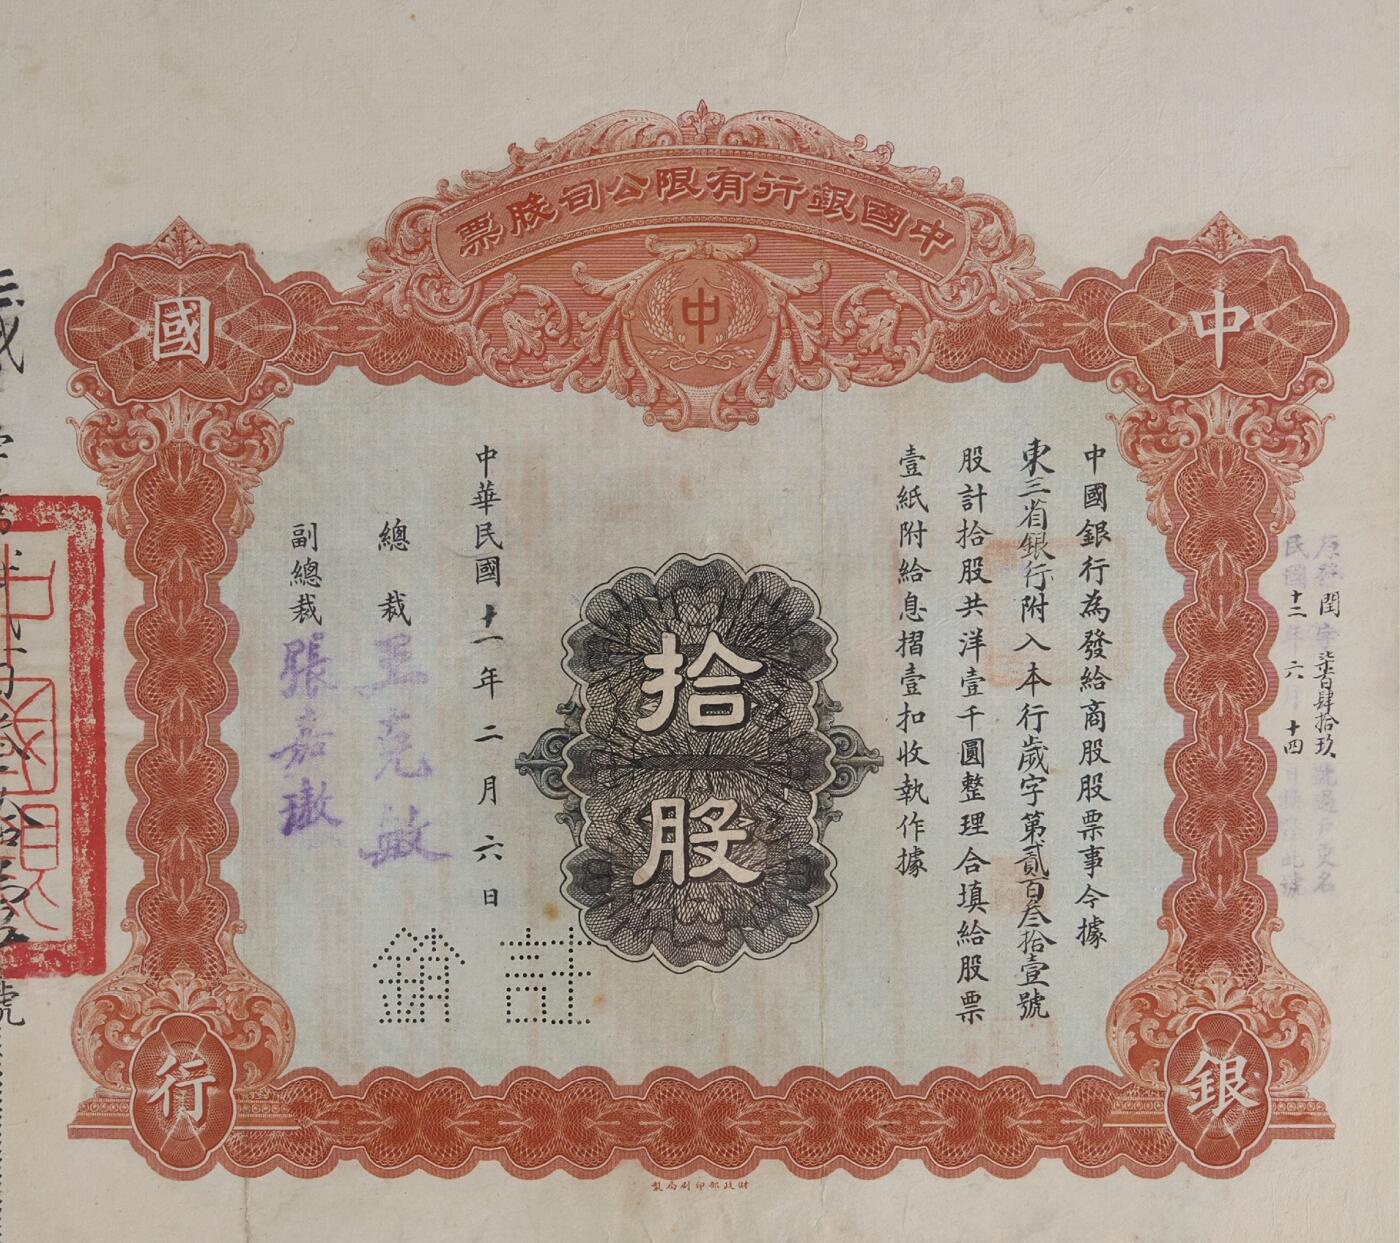 中國銀行有限公司股票
中
中
國
銀
行
中國銀行為發給商股股票事今據
東三省銀行附入本行歲字第貳百叁拾壹號
股計拾股共洋壹千圓整理合填給股票
壹紙附給息摺壹扣收執作據
拾股
中華民國十一年二月六日
總裁王克敏
副總裁張嘉璈
註銷
原稱閏字柒百肆拾玖號過戶更名
民國十二年六月十四日換發此號
財政部印刷局製